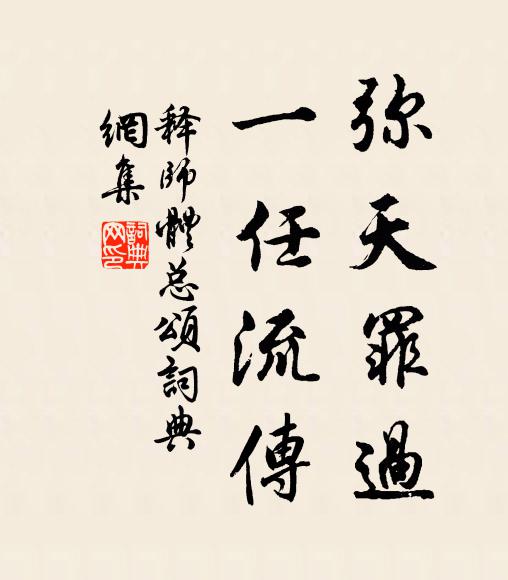 弥天罪過
一任流傳
释師體总頌詞典
網集
詞典
网印